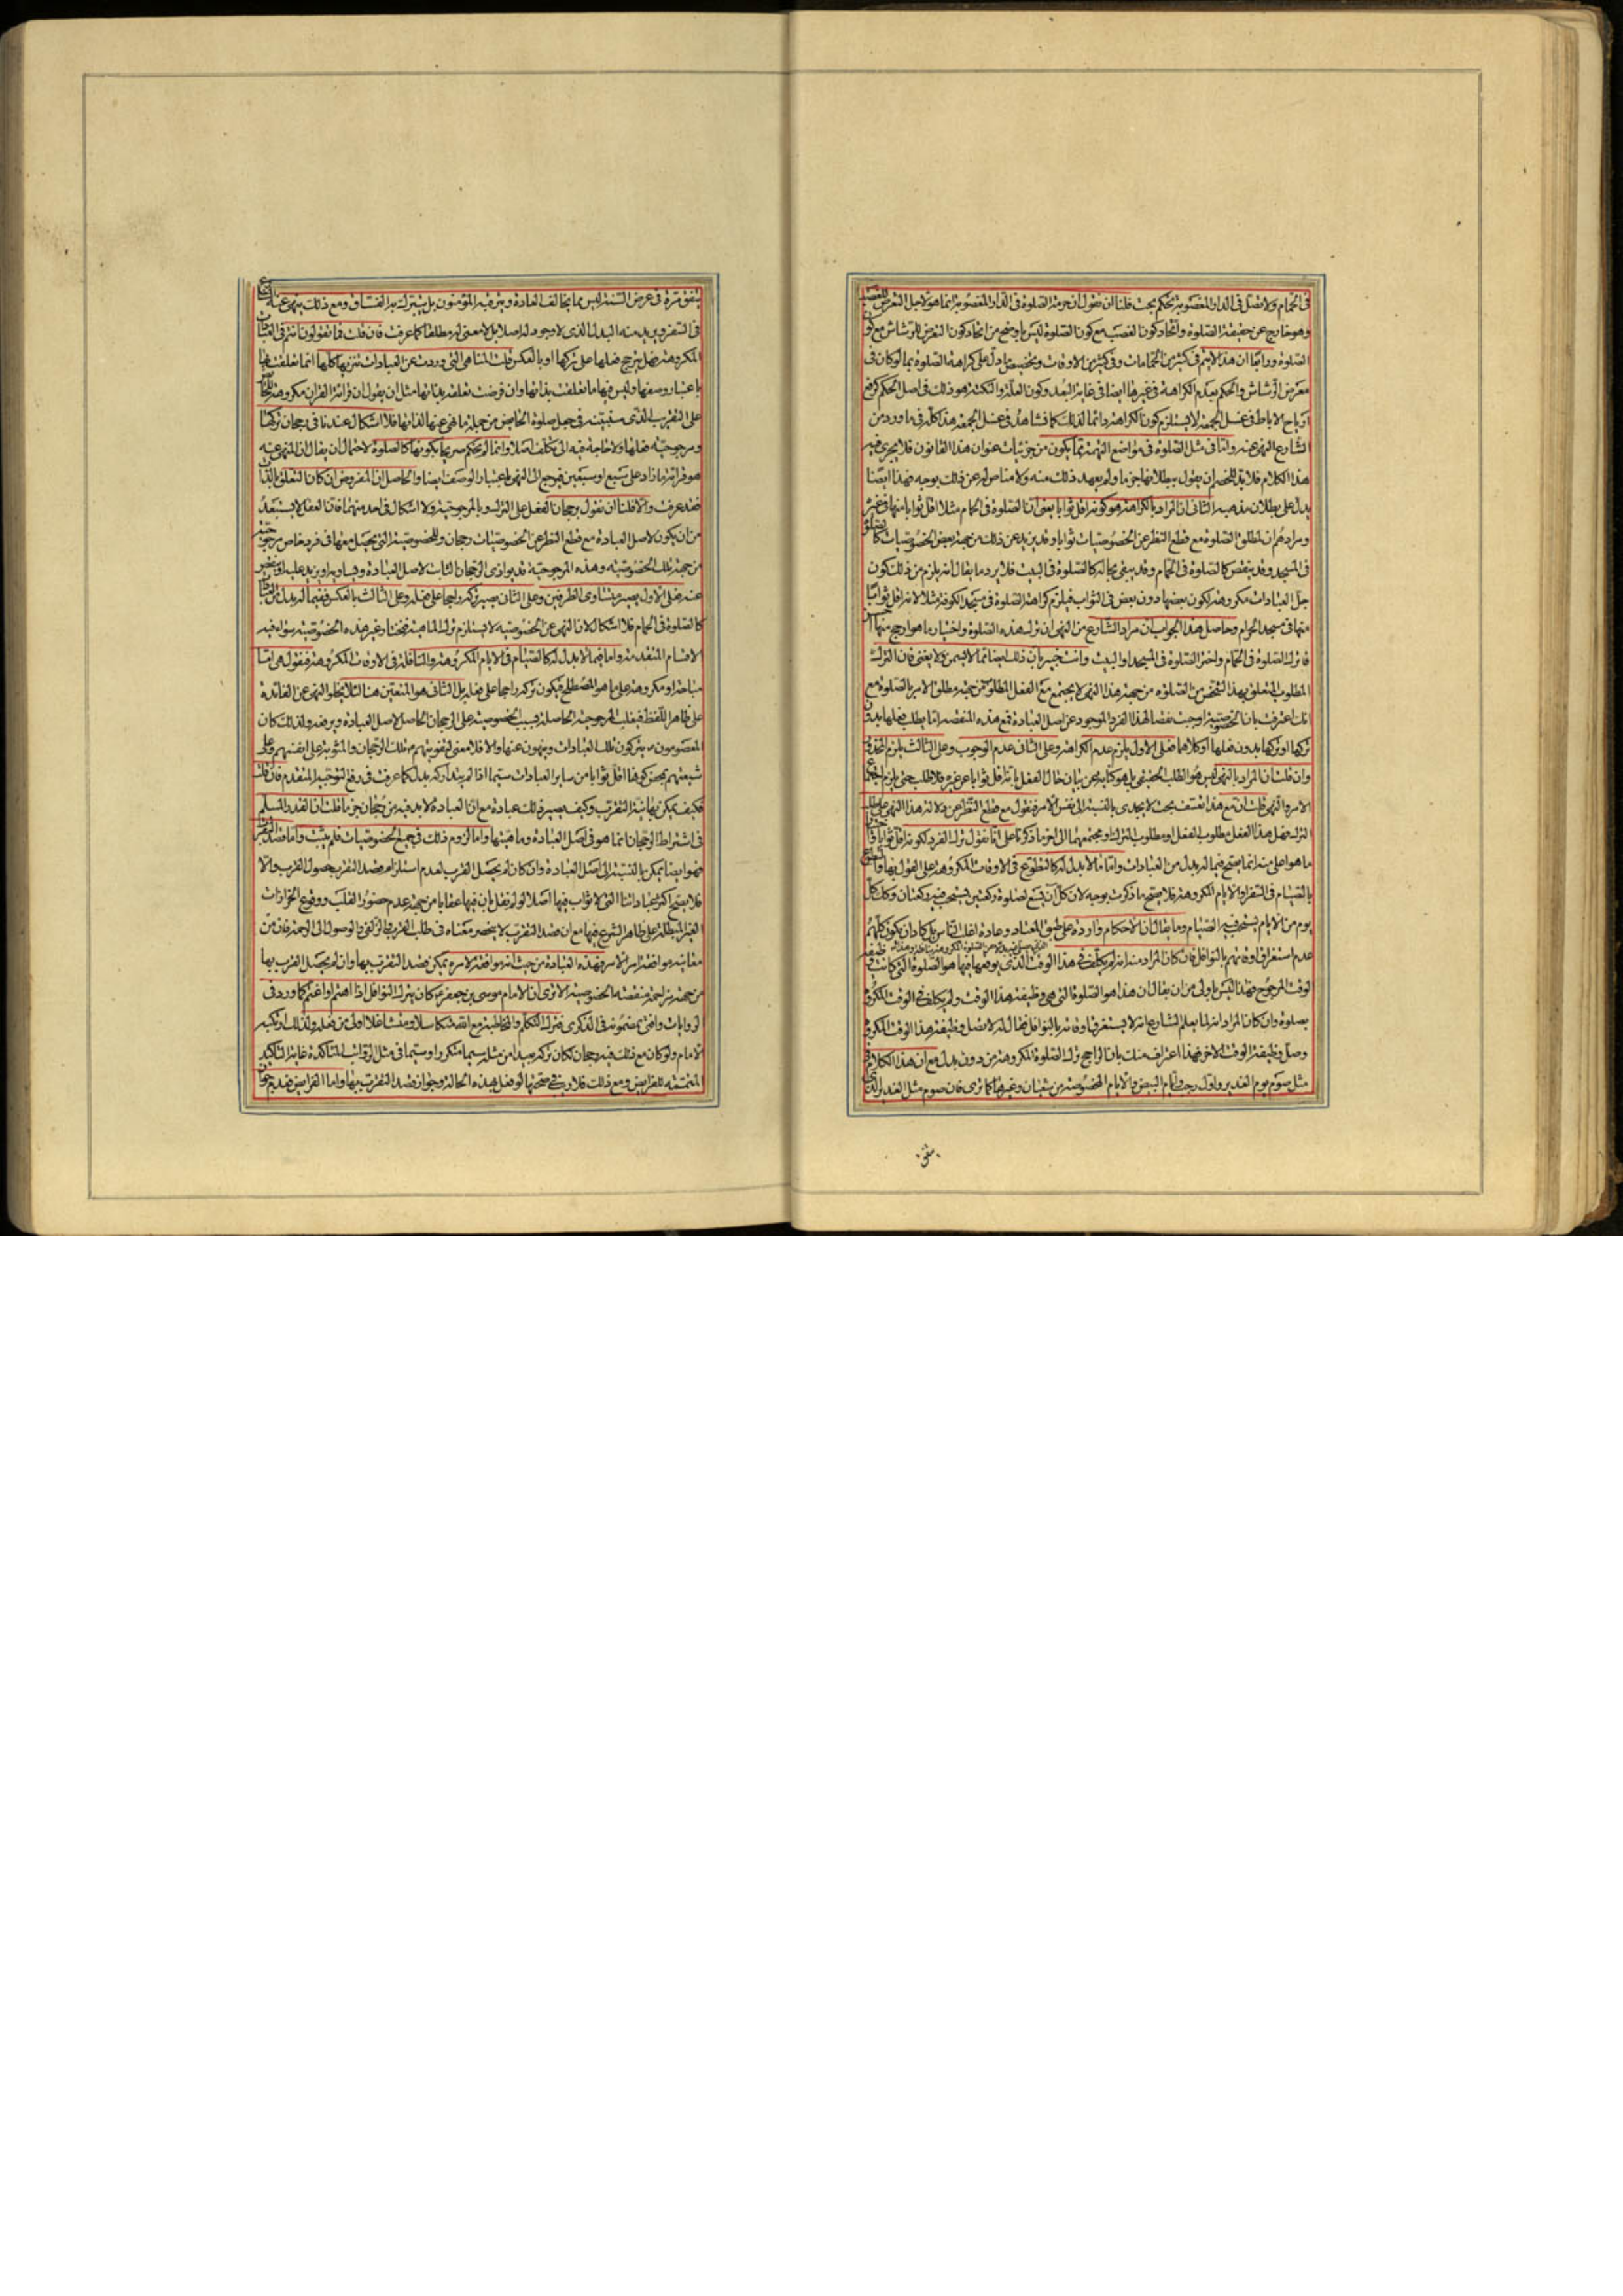 في الحمام ولا تصل في الدار المغصوبة بحكم بحت قلنا ان نقول ان حرمة الصلوة في الدار المغصوبة انما هو لاجل التعرض للغصب
وهو خارج عن حقيقة الصلوة واتحاد كون الغصب مع كون الصلوة ليس باوضح من اتحاد كون التعرض للرشاش مع كون
الصلوة ورابعا ان هذا لا يتم في كثير من الحمامات وفي كثير من الاوقات وتخصيص ما دل على كراهة الصلوة بما لو كان في
معرض الرشاش والحكم بعدم الكراهة في غيرها ايضا في غاية البعد وكون العلة والنكتة هو ذلك في اصل الحكم كرفع
ارياح الاباط في غسل الجمعة لا يستلزم كون الكراهة دائما لذلك كما نشاهد في غسل الجمعة هذا كله في ما ورد من
الشارع النهي عنه واما في مثل الصلوة في مواضع التهمة مما يكون من جزئيات عنوان هذا القانون فلا يجري فيه
هذا الكلام فلا بد للخصم ان يقول ببطلانها جزما ولم يعهد ذلك منه ولا مناص له عن ذلك بوجه فهذا ايضا
يدل على بطلان مذهبه الثاني ان المراد بالكراهة هو كونه اقل ثوابا يعني ان الصلوة في الحمام مثلا اقل ثوابا منها في غيره
ومرادهم ان لمطلق الصلوة مع قطع النظر عن الخصوصيات ثوابا وقد يزيد عن ذلك من جهة بعض الخصوصيات كالصلوة
في المسجد وقد ينقص كالصلوة في الحمام وقد يبقى بحاله كالصلوة في البيت فلا يرد ما يقال انه يلزم من ذلك كون
جل العبادات مكروهة لكون بعضها دون بعض في الثواب فيلزم كراهة الصلوة في مسجد الكوفة مثلا لانه اقل ثوابا
منها في مسجد الحرام وحاصل هذا الجواب ان مراد الشارع من النهي ان ترك هذه الصلوة واختيار ما هو ارجح منها احسن
فاترك الصلوة في الحمام واختر الصلوة في المسجد او البيت وانت خبير بان ذلك ايضا مما لا يسمن ولا يغني فان الترك
المطلوب المتعلق بهذا الشخص من الصلوة من جهة هذا النهي لا يجتمع مع الفعل المطلوب من جهة مطلق الامر بالصلوة مع
انك اعترفت بان الخصوصية اوجبت نقصا لهذا الفرد الموجود عن اصل العبادة فمع هذه المنقصة اما يطلب فعلها بدون
تركها او تركها بدون فعلها او كلاهما فعلى الاول يلزم عدم الكراهة وعلى الثاني عدم الوجوب وعلى الثالث يلزم المحذور
وان قلت ان المراد بالنهي ليس هو الطلب الحقيقي بل هو كناية عن بيان حال الفعل بانه اقل ثوابا عن غيره فلا طلب حتى يلزم اجتماع
الامر والنهي قلت ان مع هذا تعسف بحت لا يجدي بالنسبة الى نفس الامر فنقول مع قطع النظر عن دلالة هذا النهي على طلب
الترك فهل هذا الفعل مطلوب الفعل او مطلوب الترك او مجتمعهما الى اخر ما ذكرنا على انا نقول ترك الفرد لكونه اقل ثوابا واختيار
ما هو اعلى منه انما يصح فيما له بدل من العبادات واما ما لا بدل له كالتطوع في الاوقات المكروهة على القول بها والتطوع
بالصيام في السفر او الايام المكروهة فلا يصح ما ذكرت بوجه لان كل ان يسع لصلوة ركعتين يستحب فيه ركعتان وكذلك كل
يوم من الايام يستحب فيه الصيام وما يقال ان الاحكام واردة على طبق المعتاد وعادة اغلب الناس بل كاد ان يكون كلهم
عدم استغراق اوقاتهم بالنوافل فان كان المراد منه انه لم يكلف في هذا الوقت الذي يوقعها فيها هو الصلوة التي كانت وظيفة
لوقت المرجوح فهذا ليس باولى من ان يقال ان هذا هو الصلوة التي هي وظيفة هذا الوقت ولم يكلف في الوقت المكروه
بصلوة وان كان المراد انه لما يعلم الشارع انه لا يستغرق اوقاته بالنوافل فقال له لا تصل وظيفة هذا الوقت المكروه
وصل وظيفة الوقت الاخر فهذا اعتراف منك بان الراجح ترك الصلوة المكروهة من دون بدل مع ان هذا الكلام في
مثل صوم يوم الغدير واول رجب وايام البيض والايام المخصوصة من شعبان وغيرها كما ترى فان صوم مثل الغدير الذي
يتفق
يتفق مرة في عرض السنة ليس مما يخالف العادة ويترفه المؤمنون بل يشترك به الفساق ومع ذلك ينهى عنه
في السفر ويريد منه البدل الذي لا وجود له اصلا بل لا معنى له مطلقا كما عرفت فان قلت فما تقولون انتم في العبادات
المكروهة فهل يترجح فعلها على تركها او بالعكس قلت المناهي التي وردت عن العبادات تنزيها كلها انما تعلقت بها
باعتبار وصفها وليس فيها ما تعلقت بذاتها وان فرضت تعلقه بذاتها مثل ان يقول ان قرائة القران مكروهة للجنب
على التقريب الذي سنبينه في جعل صلوة الحائض من جملة ما نهي عنها لذاتها فلا اشكال عندنا في رجحان تركها
ومرجوحية فعلها ولا حاجة فيه الى تكلف اصلا وانما لم نحكم صريحا بكونها كالصلوة لاحتمال ان يقال ان المنهي عنه
هو قرائة ما زاد على سبع او سبعين فيرجع الى النهي باعتبار الوصف ايضا والحاصل ان المفروض ان كان التعلق بالذات
فقد عرفت والا قلنا ان نقول برجحان الفعل على الترك وبالمرجوحية ولا اشكال في احد منهما فان العقل لا يستبعد
من ان يكون لاصل العبادة مع قطع النظر عن الخصوصيات رجحان وللخصوصية التي يحصل معها في فرد خاص مرجوحية
من جهة تلك الخصوصية وهذه المرجوحية قد يوازي الرجحان الثابت لاصل العبادة ويساويه او يزيد عليه او ينقص
عنه فعلى الاول يصير متساوي الطرفين وعلى الثاني يصير تركه راجحا على فعله وعلى الثالث بالعكس ففيما له بدل من العبادات
كالصلوة في الحمام فلا اشكال لان النهي عن الخصوصية لا يستلزم ترك الماهية فنختار غير هذه الخصوصية سواء فيه
الاقسام المتقدمة واما فيما لا بدل له كالصيام في الايام المكروهة والنافلة في الاوقات المكروهة فنقول هي اما
مباحة او مكروهة على ما هو المصطلح فيكون تركه راجحا على فعله بل الثاني هو المتعين هنا لئلا يخلو النهي عن الفائدة
على ظاهر اللفظ فيغلب المرجوحية الحاصلة بسبب الخصوصية على الرجحان الحاصل لاصل العبادة ويرفعه ولذلك كان
المعصومون ع يتركون تلك العبادات وينهون عنها والا فلا معنى لتفويتهم تلك الرجحان والمثوبة على انفسهم وعلى
شيعتهم بمحض كونها اقل ثوابا من ساير العبادات سيما اذا لم يتداركه بدل كما عرفت في رفع التوجيه المتقدم فان قلت
فكيف يمكن نية التقرب وكيف يصير ذلك عبادة مع ان العبادة لا بد فيه من رجحان جزما قلت ان القدر المسلم
في اشتراط الرجحان انما هو في اصل العبادة وماهيتها واما لزوم ذلك في جميع الخصوصيات فلم يثبت واما قصد التقرب
فهو ايضا يمكن بالنسبة الى اصل العبادة وان كان لم يحصل القرب لعدم استلزام قصد التقرب حصول القرب والا
فلا يصح اكثر عباداتنا التي لا ثواب فيها اصلا لو لم نقل بان فيها عقابا من جهة عدم حضور القلب ووقوع الحزازات
الغير المبطلة على ظاهر الشرع فيها مع ان قصد التقرب لا ينحصر معناه في طلب القرب والزلفى والوصول الى الرحمة فان من
معانيه موافقة امر الامر فهذه العبادة من حيث انه موافقة لامره يمكن قصد التقرب بها وان لم يحصل القرب بها
من جهة مزاحمة منقصة الخصوصية الا ترى ان الامام موسى بن جعفر ع كان يترك النوافل اذا اهتم او اغتم كما ورد في
الروايات وافتى بمضمونه في الذكرى فترك التكلم والمخاطبة مع الله متكاسلا ومتشاغلا اولى من فعله ولذلك ارتكبه
الامام ولو كان مع ذلك فيه رجحان لكان تركه بعيدا من مثله سيما متكررا وسيما في مثل الرواتب المتاكدة غاية التاكيد
المتممة للفرايض ومع ذلك فلا ريب في صحتها لو فعل بهذه الحالة وجواز قصد التقرب بها واما الفرايض فعدم جواز